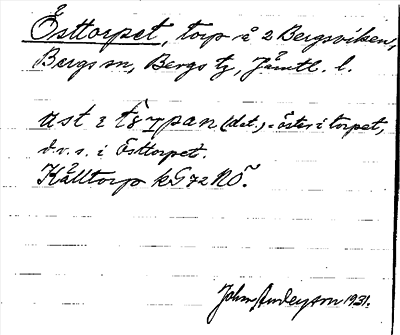 Östtorpet, torp å 2 Bergsviken,
Bergs sn, Bergs tg, Jämtl. l.
ust i törpan (det.) = öster i torpet,
d.v.s. i Östtorpet.
Källtorp kG72NÖ.
John Andersson 1931.